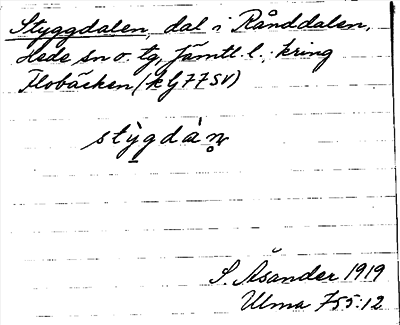 Styggdalen, dal i Rånddalen,
Hede sn o. tg, Jämtl. l.; kring
Flobäcken (kG77SV)
S. Åsander 1919
Ulma 755:12